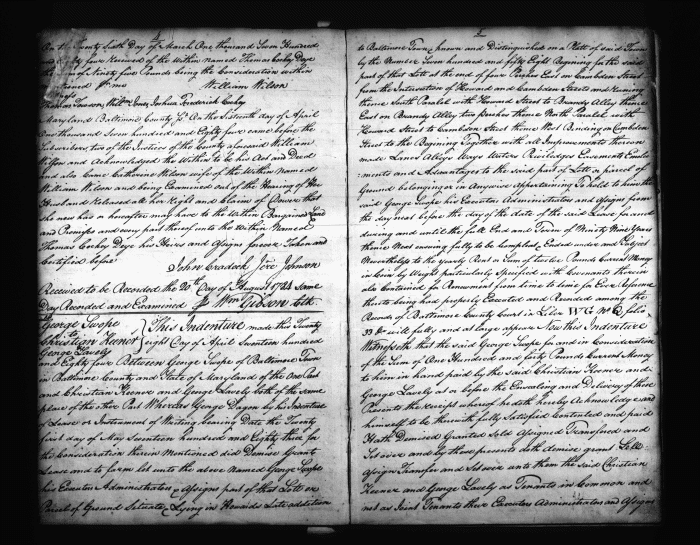 On the Twenty Sixth Day of March One thousand Seven Hundred
and Eighty four Received of the Within Named Thomas Corby Deye
Sum of Ninety five Pounds being the Consideration within
mentioned pr me William Wilson
Thomas Lawson, Joshua Frederick Corby
Maryland Baltimore County Ss. On the Sixteenth day of April
One thousand Seven hundred and Eighty four came before the
Subscribers two of the Justices of the County aforesaid William
Wilson and Acknowledged the Within to be his Act and Deed
and also Came Catherine Wilson wife of the Within Named
William Wilson and being Examined out of the Hearing of Her
Husband Released all her Right and Claim of Dower that
she now has or hereafter may have to the Within Bargained Land
and Premises and every part thereof unto the Within Named
Thomas Corby Deye his Heirs and Assigns forever Taken and
Certified before
John Cradock Jere Johnson
Received to be Recorded the 20th Day of August 1784 Same
Day Recorded and Examined pr Wm Gibson Clk
George Swope
to
Christian Keener
George Lavely
This Indenture made this Twenty
eight Day of April Seventeen hundred
and Eighty four Between George Swope of Baltimore Town
in Baltimore County and State of Maryland of the One Part
and Christian Keener and George Lavely both of the same
place of the other Part Whereas George Dagon by his Indenture
of Lease or Instrument of Writing bearing Date the Twenty
first day of May Seventeen hundred and Eighty three for
the consideration therein Mentioned did Demise Grant
Lease and to farm let unto the above Named George Swope
his Executors Administrators & Assigns part of that Lott or
Parcel of Ground Situate & Lying in Howards Late addition
to Baltimore Town known and Distinguished on a Platt of said Town
by the Number Seven hundred and fifty Eight Begining for the said
part of that Lott at the end of four Perches East on Cambden Street
from the Intersection of Howard and Cambden Streets and runing
thence South Paralel with Howard Street to Brandy Alley thence
East on Brandy Alley two perches thence North Paralel with
Howard Street to Cambden Street thence West Binding on Cambden
Street to the Begining Together with all Improvements thereon
made Lanes Alleys Ways Waters Priviledges Easements Emolu
:ments and Advantages to the said part of Lott or parcel of
Ground belonging or in Anywise Appertaining To hold to him the
said George Swope his Executors Administrators and Assigns from
the day next before the day of the date of the said Lease for and
during and until the full End and Term of Ninety Nine Years
thence Next ensuing fully to be Compleat & Ended under and Subject
Nevertheless to the yearly Rent or Sum of twelve Pounds Current Money
in Coin by Weight particularly Specified with Covenants therein
also Contained for Renewment from time to time for Ever Reference
thereto being had properly Executed and Recorded among the
Records of Baltimore County Court in Liber W G No folio
33 &c will fully and at large appear Now this Indenture
Witnesseth that the said George Swope for and in Consideration
of the Sum of One Hundred and forty Pounds Current Money
to him in hand paid by the said Christian Keener and
George Lavely at or before the Ensealing and Delivery of these
Presents the Receipt whereof he doth hereby Acknowledge and
himself to be therewith fully Satisfied Contented and paid
Hath Demised Granted Sold Assigned Transfered and
Set over and by these presents doth demise grant Sell
Assign Transfer and Set over unto them the said Christian
Keener and George Lavely as Tenants in Common and
not as Joint Tenants there Executors Administrators and Assigns